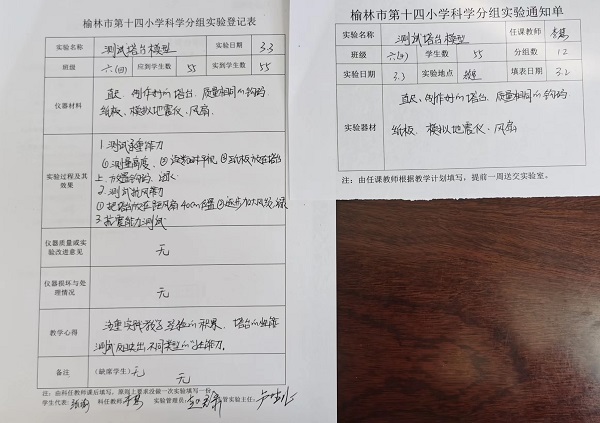 榆林市第十四小学科学分组实验登记表
实验名称 测试塔台模型 实验日期 3.3
班级 六(四) 应到学生数 55 实到学生数 55
仪器材料
直尺、制作好的塔台、质量相同的钩码
纸板、模拟地震仪、风扇
实验过程及其
效果
1.测试承重能力
① 测量高度、②
上、放置钩码、记录
2.测试抗风能力
① 把塔台放在距风扇40cm位置②逐步加大风力,记录
3.抗震能力测试
仪器质量或实
验改进意见
无
仪器损坏与处
理情况
无
教学心得
注重实践教学经验的积累、塔台的性能
测试反映出不同类型的
备注 (缺席学生) 无 无
注:由科任教师课后填写,原则上要求没做一次实验填写一份
学生代表: 科任教师: 李 实验管理员: 管实验主任:
榆林市第十四小学科学分组实验通知单
实验名称 测试塔台模型 任课教师 李
班级 六(四) 学生数 55 分组数 12
实验日期 3.3 实验地点 填表日期 3.2
实验器材
直尺、制作好的塔台、质量相同的钩码
纸板、模拟地震仪、风扇
注:由任课教师根据教学计划填写,提前一周送交实验室。